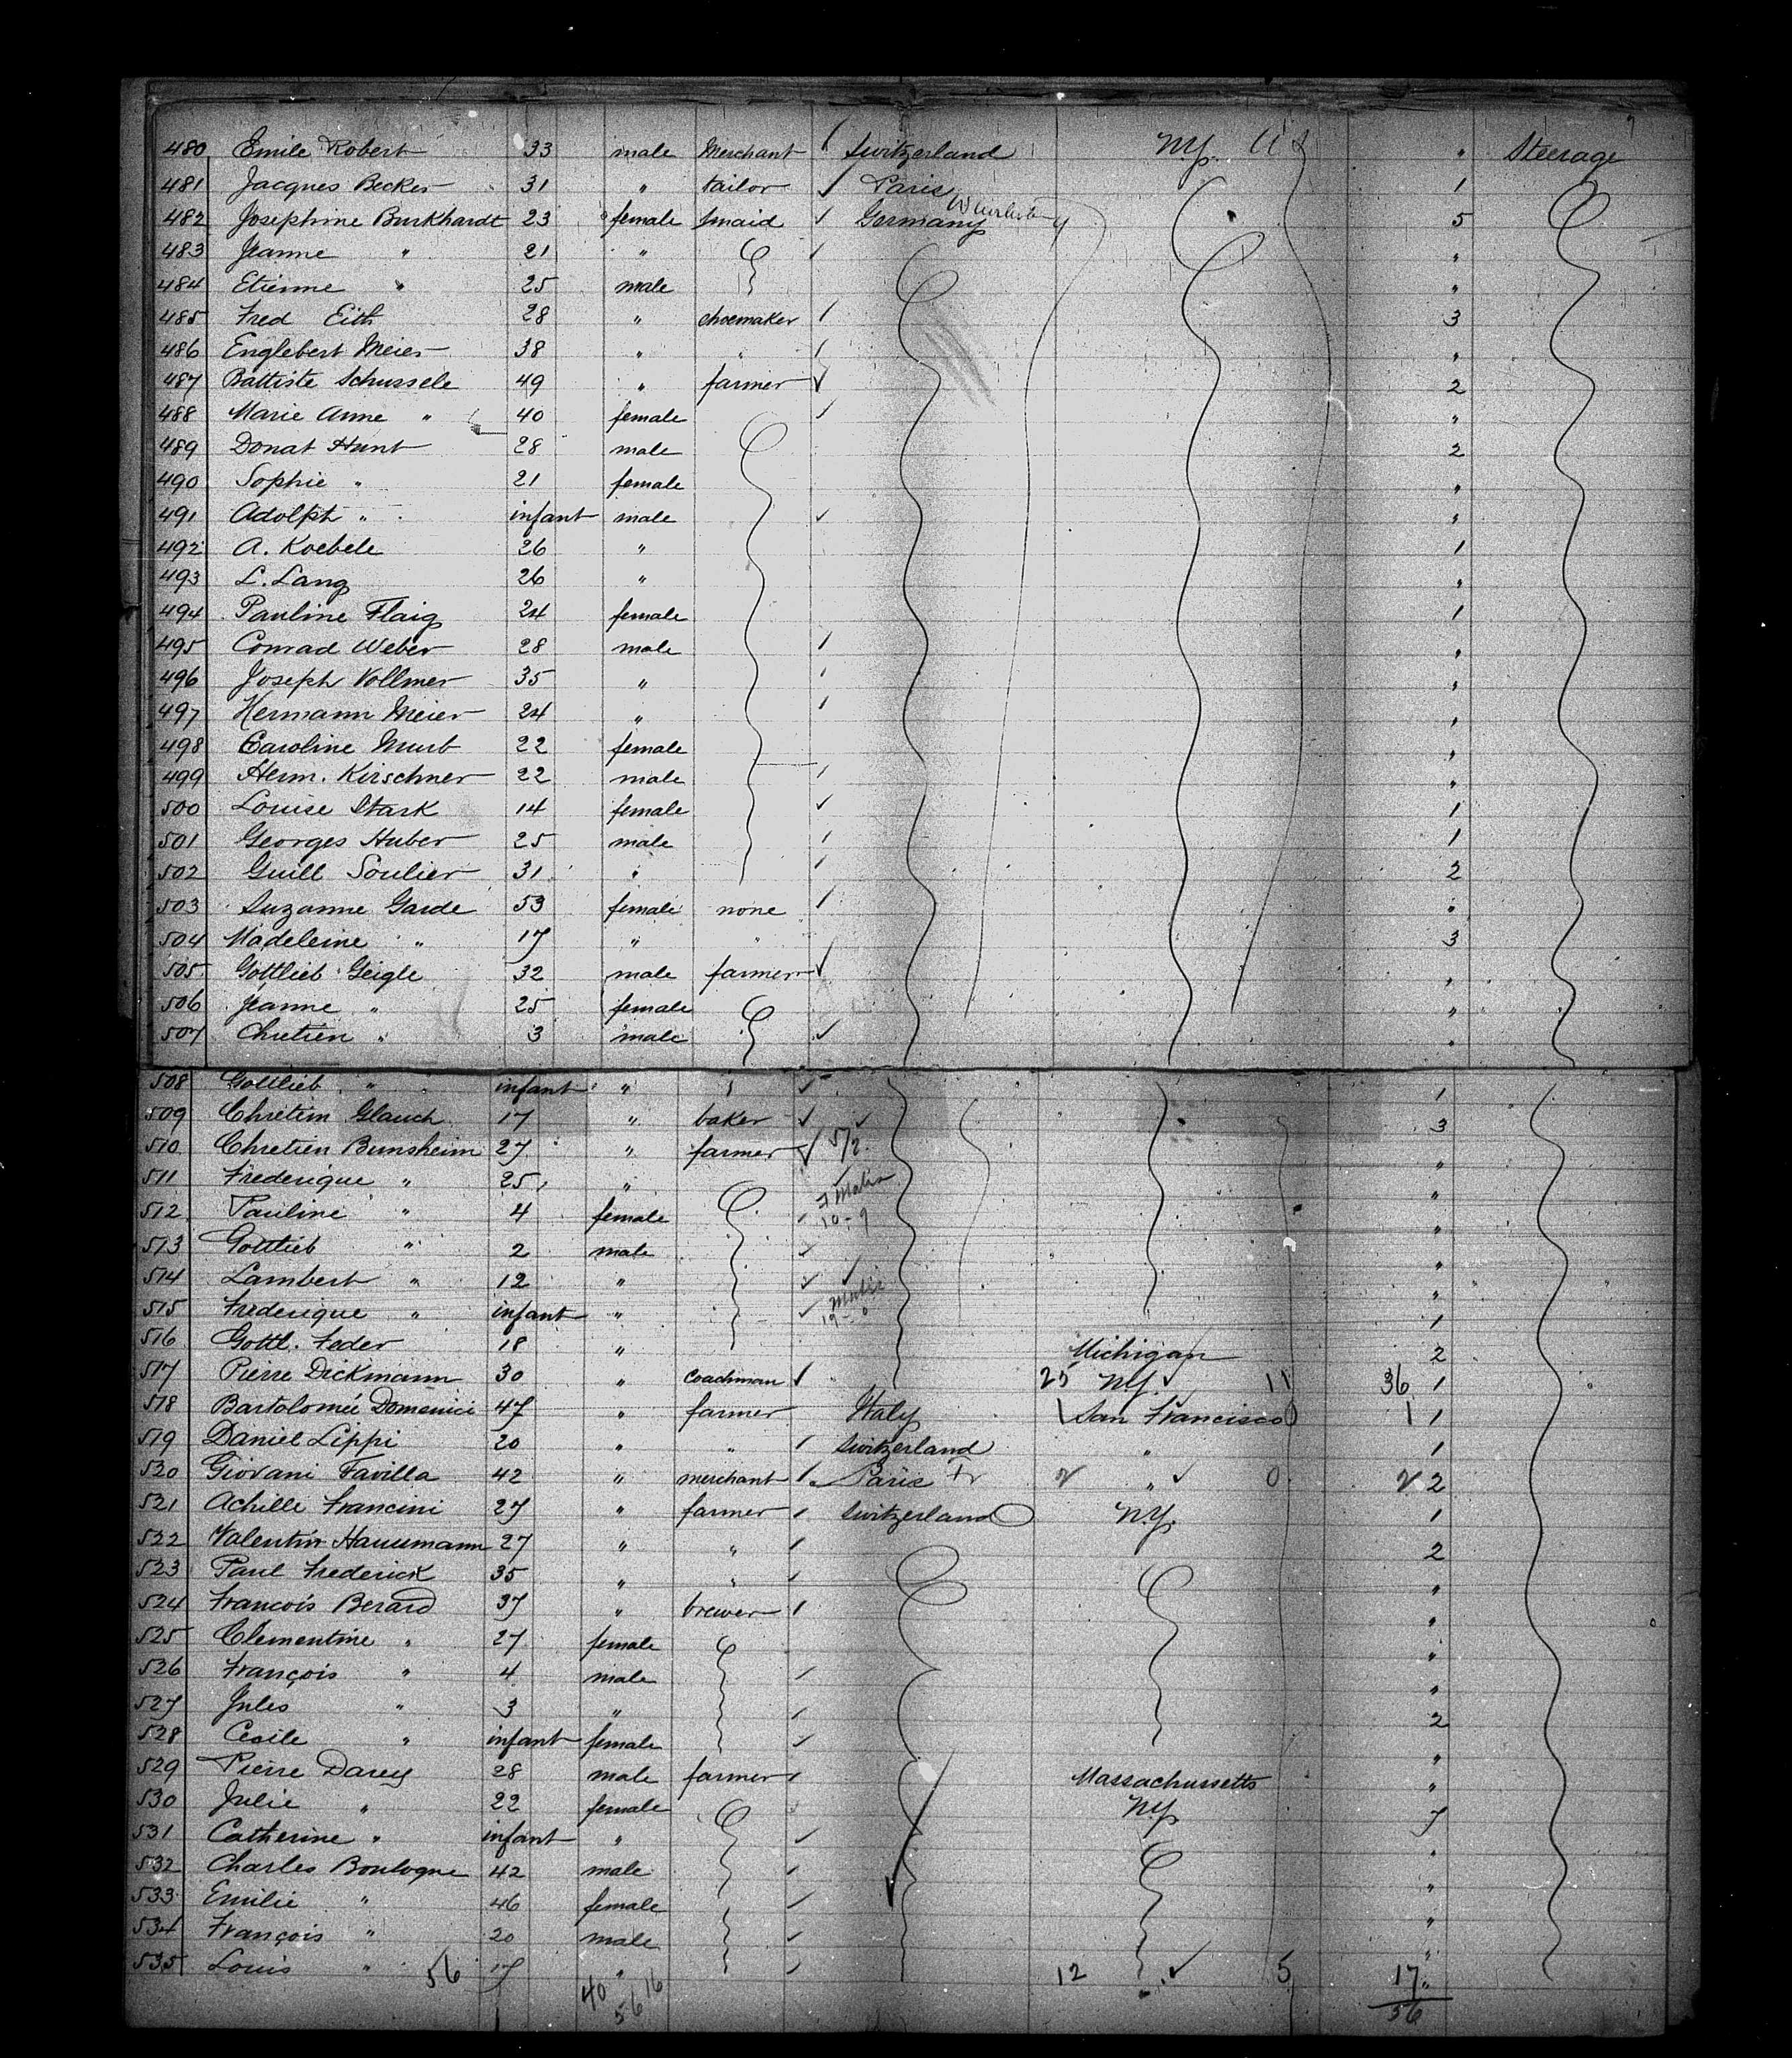 480 Emile Robert 33 male Merchant Switzerland N.Y. " Steerage
481 Jacques Becker 31 " tailor Paris 1
482 Josephine Burkhardt 23 female Smaid Germany 5
483 Jeanne " 21 " "
484 Etienne " 25 male "
485 Fred Eith 28 " shoemaker 3
486 Englebert Meier 38 " " "
487 Battiste Schussele 49 " farmer 2
488 Marie Anne " 40 female "
489 Donat Hunt 28 male 2
490 Sophie " 21 female "
491 Adolph " infant male "
492 A. Koebele 26 " 1
493 L. Lang 26 " "
494 Pauline Flaig 24 female 1
495 Conrad Weber 28 male "
496 Joseph Vollmer 35 " "
497 Hermann Meier 24 " "
498 Caroline Murb 22 female "
499 Herm. Kirschner 22 male "
500 Louise Stark 14 female 1
501 Georges Huber 25 male 1
502 Guill Soulier 31 " 2
503 Suzanne Garde 53 female none "
504 Madeleine " 17 " " 3
505 Gottlieb Geigle 32 male farmer "
506 Jeanne " 25 female "
507 Chretien " 3 male "
508 Gottlieb " infant " 1
509 Chretien Glauch 17 " baker 3
510 Chretien Bunsheim 27 " farmer "
511 Frederique " 25 " "
512 Pauline " 4 female 10-9 "
513 Gottlieb " 2 male "
514 Lambert " 12 " "
515 Frederique " infant " 1
516 Gottl. Feder 18 " Michigan 2
517 Pierre Dickmann 30 " coachman 25 N.Y. 11 36 1
518 Bartolomée Domenici 47 " farmer Italy 1 San Francisco 0 1 1
519 Daniel Lippi 20 " " Switzerland " 1
520 Giovani Favilla 42 " merchant Paris Fr 2 " 0 2 2
521 Achille Francini 27 " farmer Switzerland N.Y. 1
522 Valentin Haussmann 27 " " 2
523 Paul Frederick 35 " " "
524 Francois Berard 37 " brewer "
525 Clementine " 27 female "
526 François " 4 male "
527 Jules " 3 " 2
528 Cecile " infant female "
529 Pierre Darey 28 male farmer Massachussetts "
530 Julie " 22 female N.Y. 7
531 Catherine " infant " "
532 Charles Boulogne 42 male "
533 Emilie " 46 female "
534 François " 20 male "
535 Louis " 56 17 " 12 5 17 "
40 16
56 56